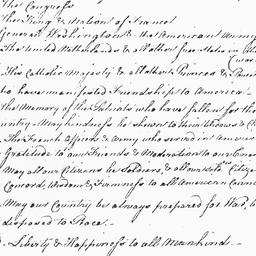 The Congress
The King & Nation of France!
General Washington & the American Army
The United Netherlands & all other free States in the
His Catholic Majesty & all other Princes & Powers
who have manifested Friendship to America
the Memory of the Patriots who have fallen for their
Country – May kindness be shewn to their Widows & Ch
The French Officers & Army who served in America
Gratitude to our Friends & Moderation to our Enemies
May all our Citizens be Soldiers, & all our Soldiers Citizens
Concord, Wisdom & Firmness to all American Councils
May our Country be always prepared for War, but
disposed to Peace –
Liberty & Happiness to all Mankind –